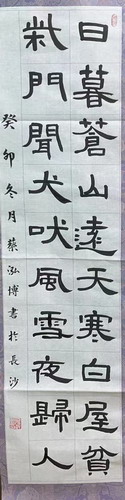 日暮蒼山遠天寒白屋貧
柴門聞犬吠風雪夜歸人
癸卯冬月蔡泓博書於長沙